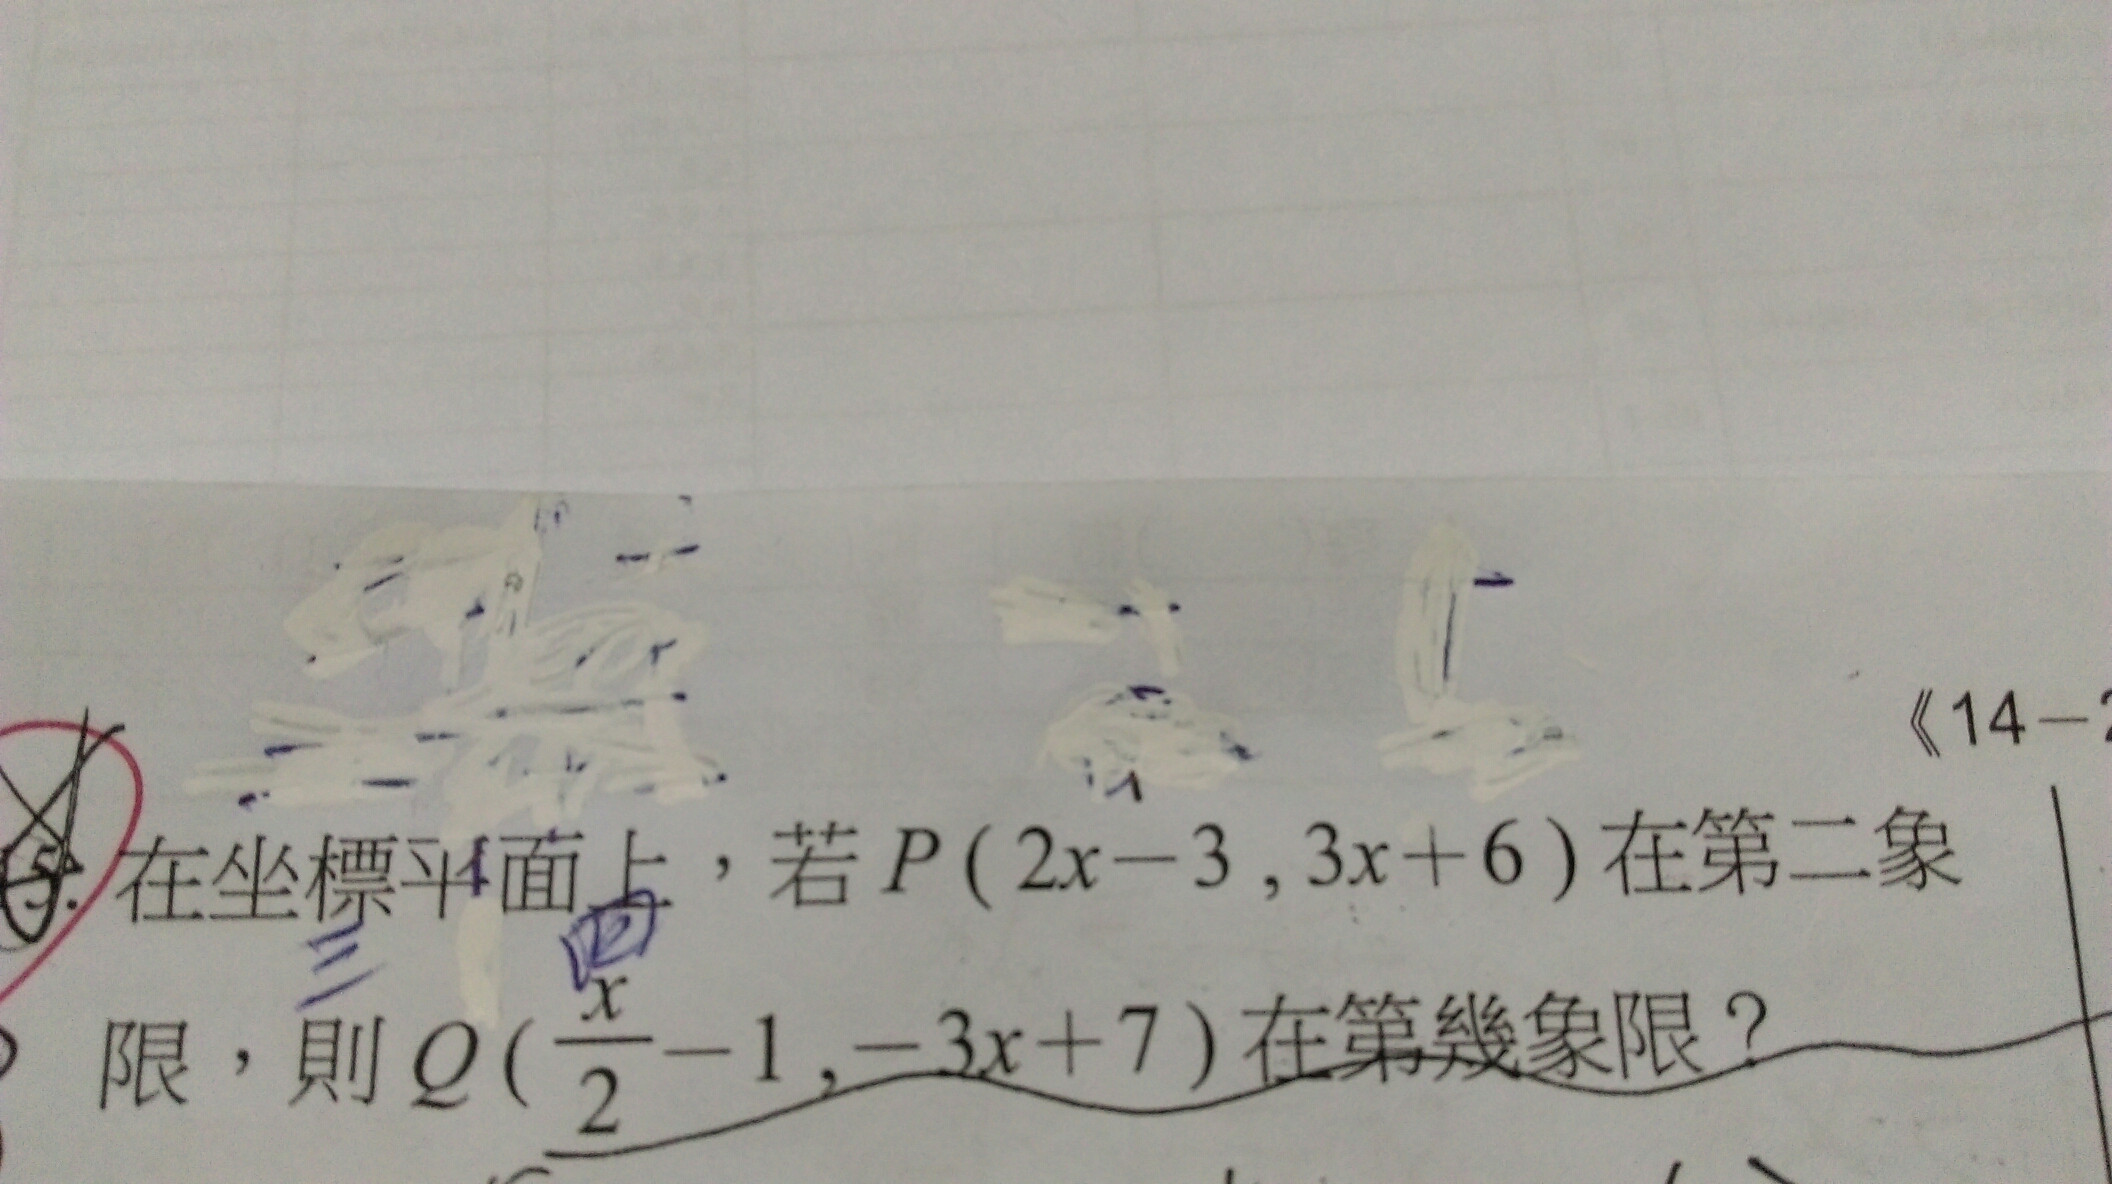 《14-2
5. 在坐標平面上，若 P ( 2x－3 , 3x＋6 ) 在第二象
限，則 Q ( x/2 －1 , －3x＋7 ) 在第幾象限？